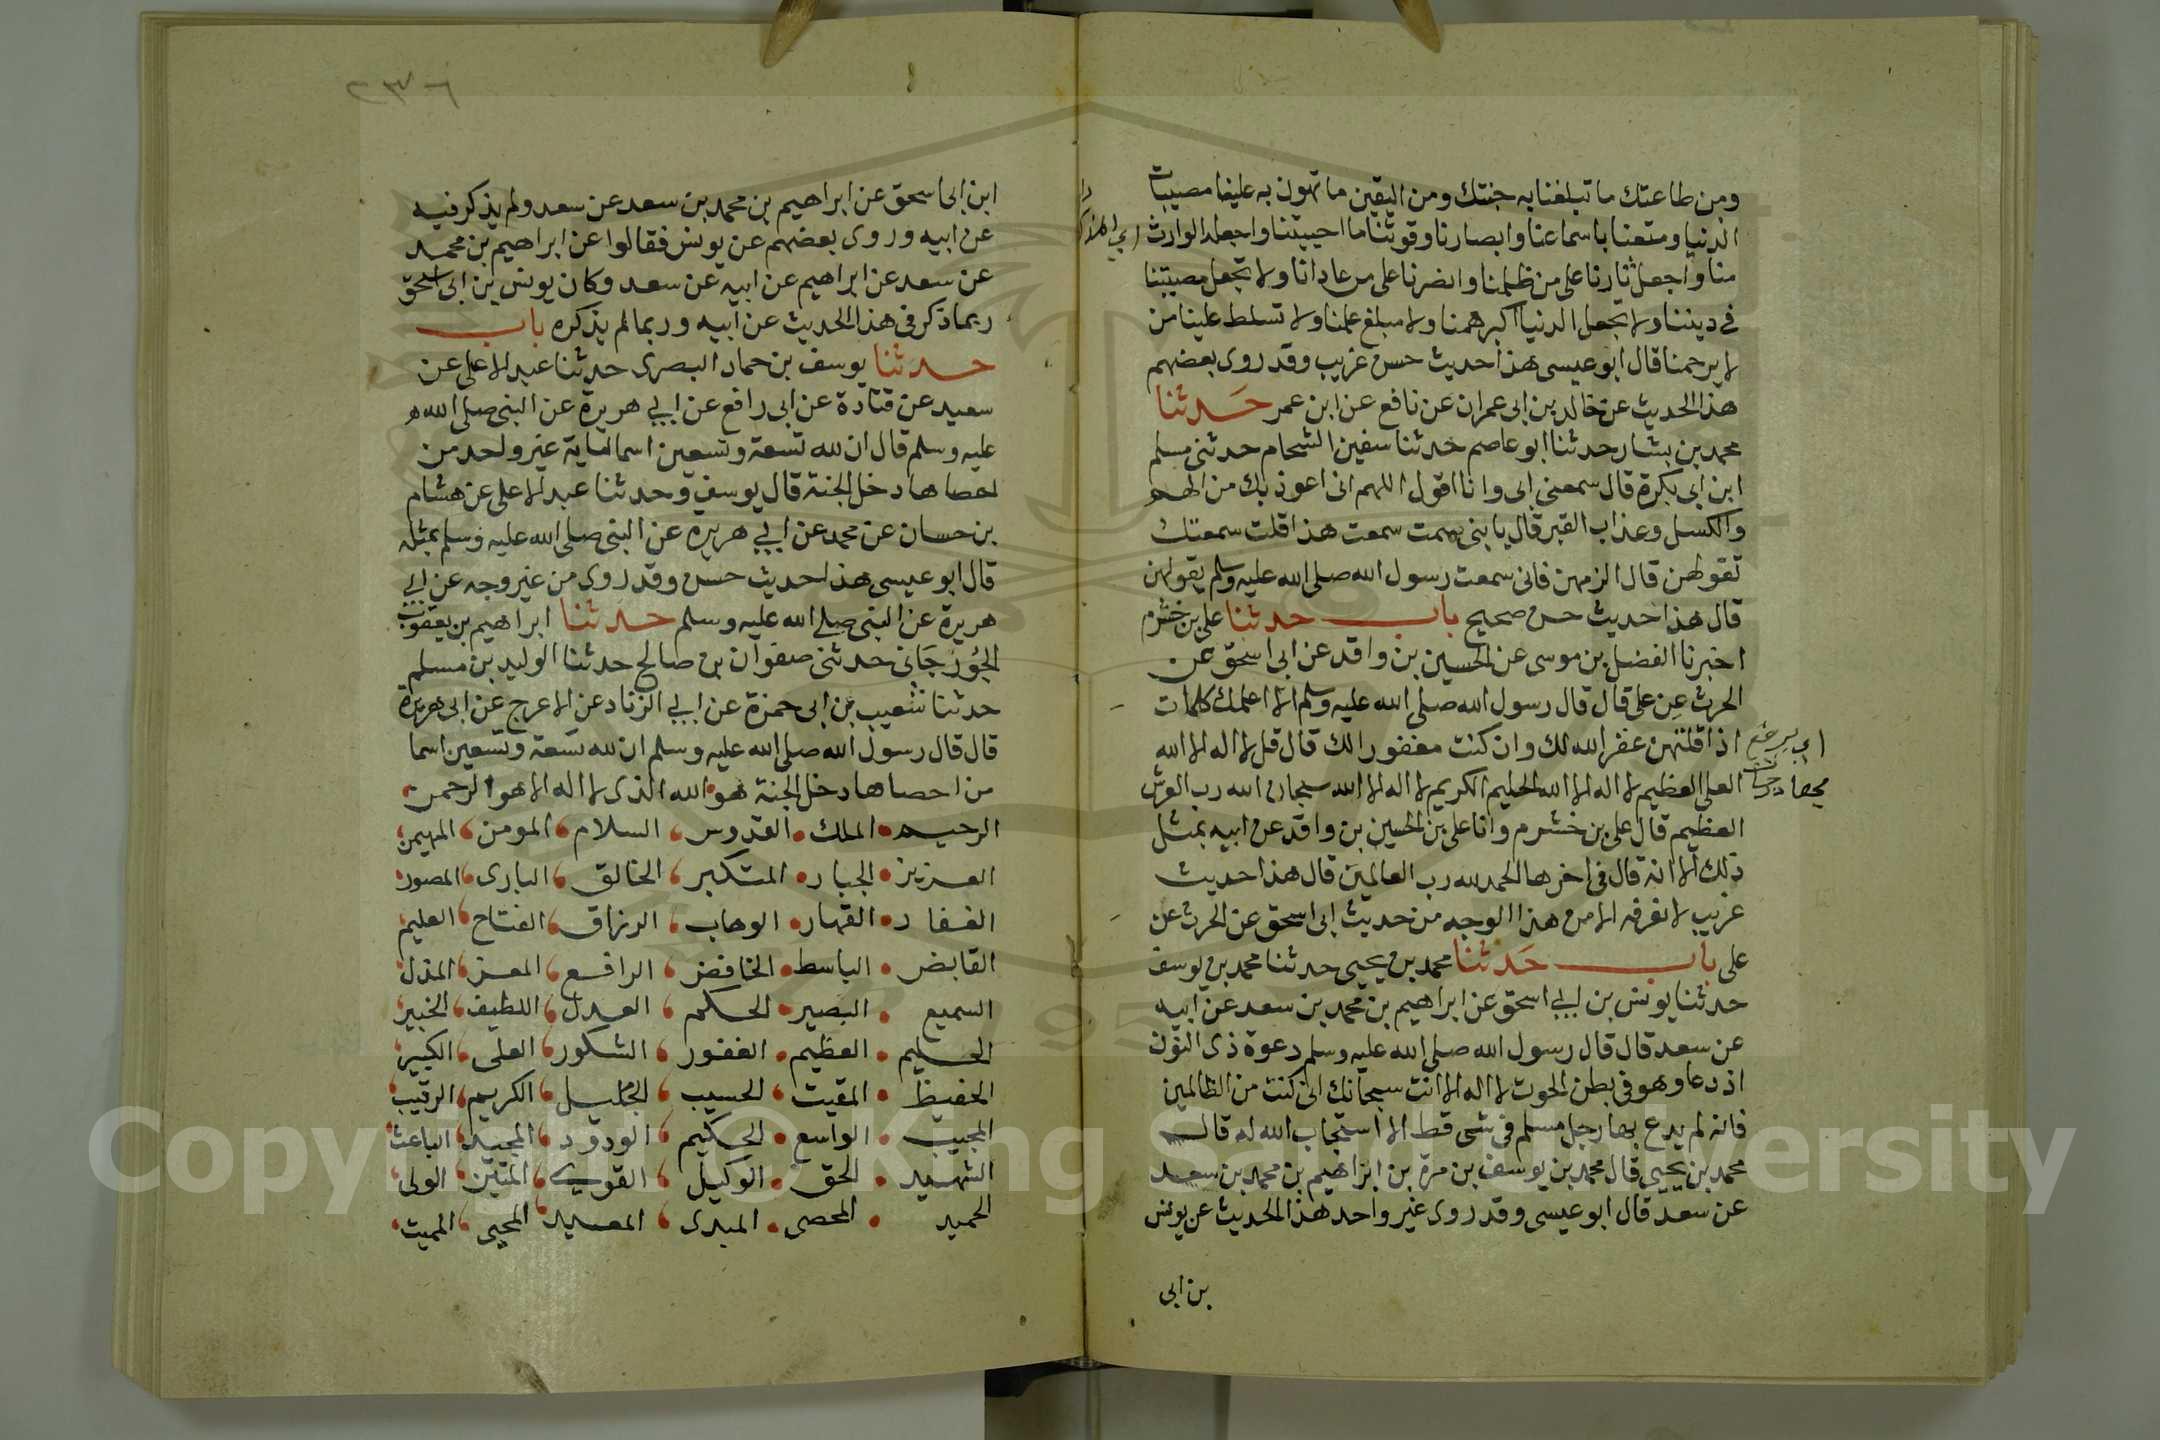 ومن طاعتك ما تبلغنا به جنتك ومن اليقين ما تهون به علينا مصيبات
الدنيا ومتعنا باسماعنا وابصارنا وقوتنا ما احييتنا واجعله الوارث
منا واجعل ثارنا على من ظلمنا وانصرنا على من عادانا ولا تجعل مصيبتنا
في ديننا ولا تجعل الدنيا اكبر همنا ولا مبلغ علمنا ولا تسلط علينا من
لا يرحمنا قال ابو عيسى هذا حديث حسن غريب وقد روى بعضهم
هذا الحديث عن خالد بن ابى عمران عن نافع عن ابن عمر حدثنا
محمد بن بشار حدثنا ابو عاصم حدثنا سفين الشحام حدثنى مسلم
ابن ابى بكرة قال سمعنى ابى وانا اقول اللهم انى اعوذ بك من الهم
والكسل وعذاب القبر قال يا بنى سمعت هذا قلت سمعتك
تقولهن قال الزمهن فانى سمعت رسول الله صلى الله عليه وسلم يقولهن
قال هذا حديث حسن صحيح باب حدثنا على بن خشرم
اخبرنا الفضل بن موسى عن الحسين بن واقد عن ابى اسحق عن
الحرث عن على قال قال رسول الله صلى الله عليه وسلم الا اعلمك كلمات
اذا قلتهن غفر الله لك وان كنت مغفورا لك قال قل لا اله الا الله
العلى العظيم لا اله الا الله الحليم الكريم لا اله الا الله سبحان الله رب العرش
العظيم قال على بن خشرم وانا على بن الحسين بن واقد عن ابيه بمثل
ذلك الا انه قال فى اخرها الحمد لله رب العالمين قال هذا حديث
غريب لا نعرفه الا من هذا الوجه من حديث ابى اسحق عن الحرث عن
على باب حدثنا محمد بن يحيى حدثنا محمد بن يوسف
حدثنا يونس بن ابى اسحق عن ابراهيم بن محمد بن سعد عن ابيه
عن سعد قال قال رسول الله صلى الله عليه وسلم دعوة ذى النون
اذ دعا وهو فى بطن الحوت لا اله الا انت سبحانك انى كنت من الظالمين
فانه لم يدع بها رجل مسلم فى شى قط الا استجاب الله له قال
محمد بن يحيى قال محمد بن يوسف بن مرة بن ابراهيم بن محمد بن سعد
عن سعد قال ابو عيسى وقد روى غير واحد هذا الحديث عن يونس
بن ابى
٢٣٦
ابن ابى اسحق عن ابراهيم بن محمد بن سعد عن سعد ولم يذكر فيه
عن ابيه وروى بعضهم عن يونس فقالوا عن ابراهيم بن محمد
عن سعد عن ابراهيم عن ابيه عن سعد وكان يونس بن ابى اسحق
ربما ذكر فى هذا الحديث عن ابيه وربما لم يذكره باب
حدثنا يوسف بن حماد البصرى حدثنا عبد الاعلى عن
سعيد عن قتادة عن ابى رافع عن ابي هريرة عن النبى صلى الله
عليه وسلم قال ان لله تسعة وتسعين اسما مائة غير واحد من
احصاها دخل الجنة قال يوسف وحدثنا عبد الاعلى عن هشام
بن حسان عن محمد عن ابي هريره عن النبى صلى الله عليه وسلم بمثله
قال ابو عيسى هذا حديث حسن وقد روى من غير وجه عن ابي
هريرة عن النبى صلى الله عليه وسلم حدثنا ابراهيم بن يعقوب
الجُوزجَانى حدثنى صفوان بن صالح حدثنا الوليد بن مسلم
حدثنا شعيب بن ابى حمزة عن ابي الزناد عن الاعرج عن ابى هريرة
قال قال رسول الله صلى الله عليه وسلم ان لله تسعة وتسعين اسما
من احصاها دخل الجنة هو الله الذى لا اله الا هو الرحمن
الرحيم الملك القدوس السلام المومن المهيمن
العزيز الجبار المتكبر الخالق البارى المصور
الغفار القهار الوهاب الرزاق الفتاح العليم
القابض الباسط الخافض الرافع المعز المذل
السميع البصير الحكم العدل اللطيف الخبير
الحليم العظيم الغفور الشكور العلى الكبير
الحفيظ المقيت الحسيب الجليل الكريم الرقيب
المجيب الواسع الحكيم الودود المجيد الباعث
الشهيد الحق الوكيل القوي المتين الولى
الحميد المحصى المبدى المعيد المحيى المميت
Copyright © King Saud University